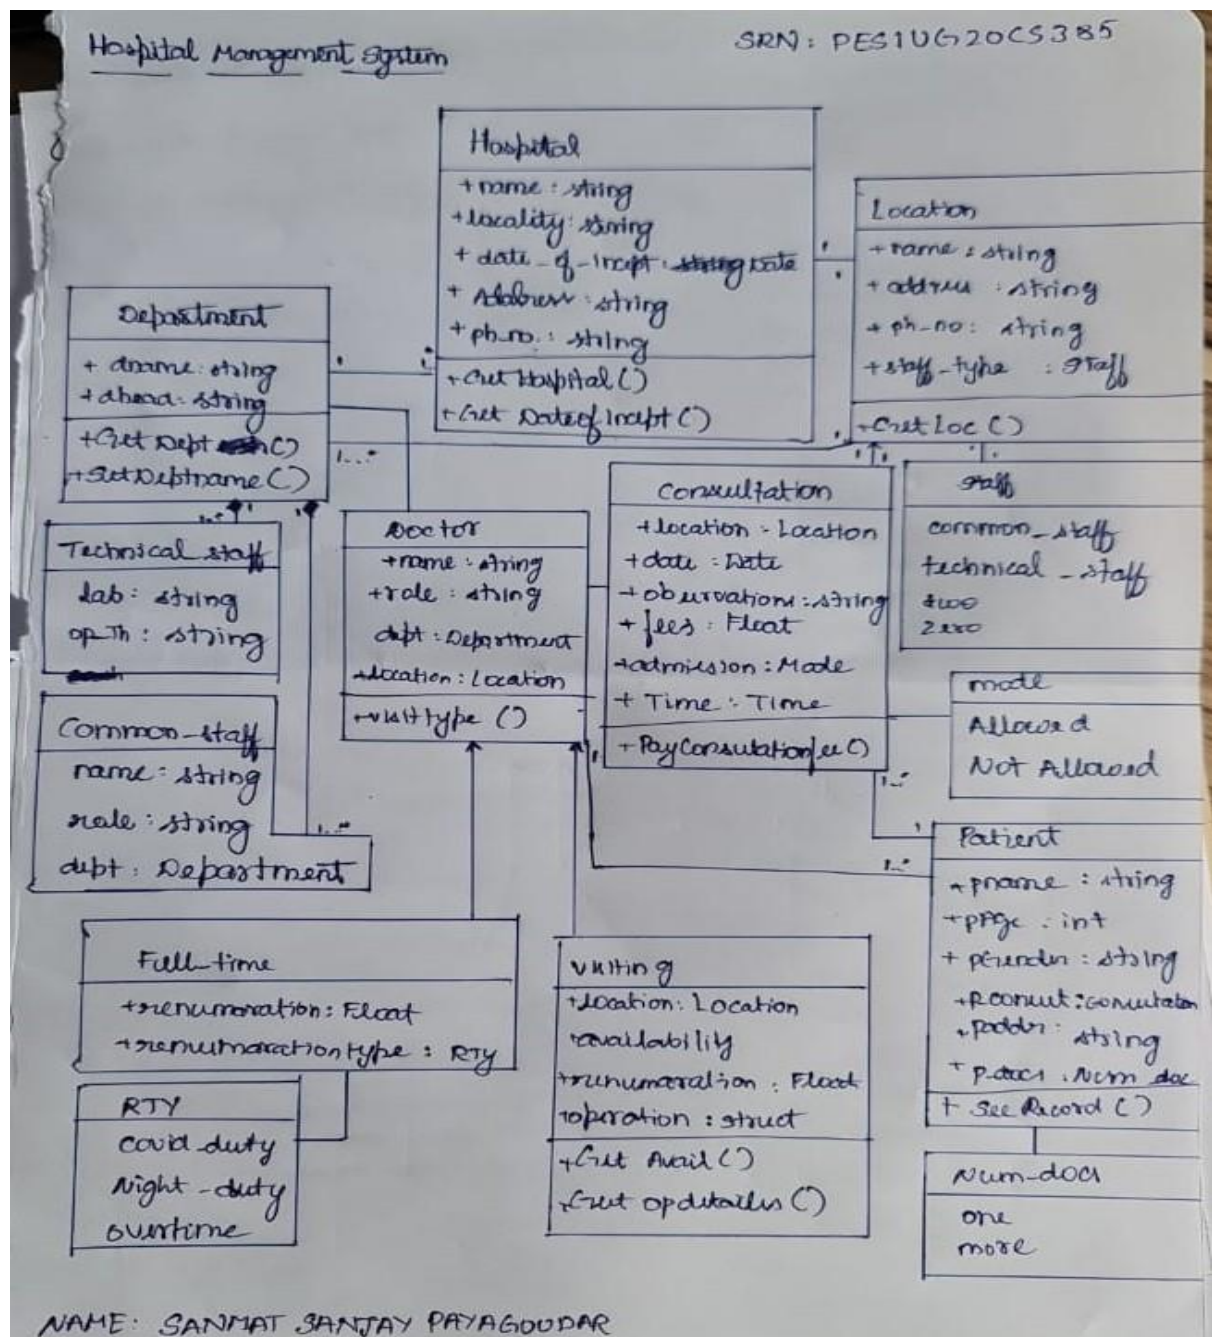 Hospital Management System
SRN: PES1UG20CS385
Hospital
+name: string
+locality: string
+ date_of_incept: Date
+ Address: string
+ ph.no.: string
+Get Hospital()
+Get DateofIncept()
Location
+name: string
+address: string
+ ph-no: string
+staff_type : Staff
+Get Loc()
Department
+ dname: string
+dhead: string
+Get Dept ()
+SetDeptname()
1..*
Technical staff
lab: string
op_Th: string
Common_staff
name: string
role: string
dept: Department
1..*
Doctor
+name: string
+role: string
dept: Department
+location: Location
+visittype ()
Consultation
+location: Location
+date: Date
+observations: string
+ fees: Float
+admission: Mode
+ Time: Time
+PayConsultationfee()
1..*
Staff
common_staff
technical_staff
two
zero
mode
Allowed
Not Allowed
Patient
1..*
+pname: string
+pAge: int
+ pGender: string
+Pconsult: Consultation
+paddr: string
+ P_docs: Num_doc
+ See Record()
Num_docs
one
more
Full_time
+renumaration: Float
+renumarationtype: RTY
RTY
covid_duty
Night-duty
overtime
Visiting
+Location: Location
+availability
+renumaration: Float
+operation: struct
+Get Avail()
+Get opdetailes()
NAME: SANMAT SANJAY PAYAGOUDAR